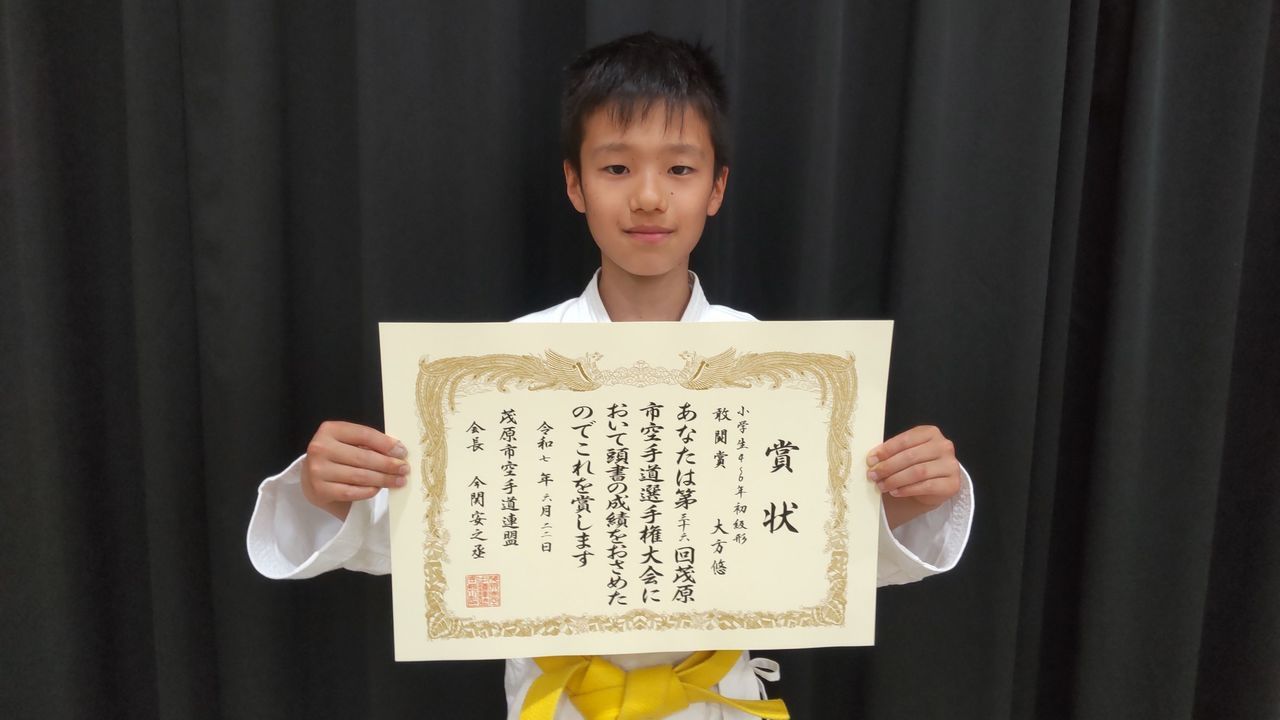 賞状
小学生4~6年初級形
敢闘賞 大方悠
あなたは第三十六回茂原
市空手道選手権大会に
おいて頭書の成績をおさめた
のでこれを賞します
令和七年六月二二日
茂原市空手道連盟
会長 今関安之丞